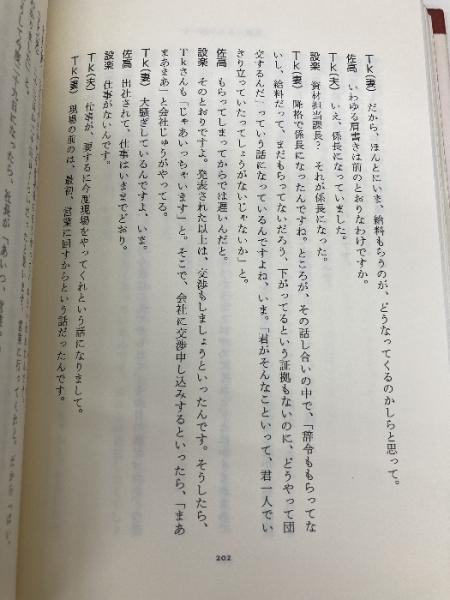 Tk(妻) だから、ほんとにいま、給料もらうのが、どうなってくるのかしらと思って。
佐高 いわゆる肩書きは前のとおりなわけですか。
Tk(夫) いえ、係長になっていました。
設楽 資材担当課長? それが係長になった。
Tk(妻) 降格で係長になったんですね。ところが、その話し合いの中で、「辞令ももらってな
いし、給料だって、まだもらってないだろう、下がってるという証拠もないのに、どうやって団
交するんだ」っていう話になっているんですよね、いま。「君がそんなこといって、君一人でい
きり立っていたってしょうがないじゃないか」と。
佐高 もらってしまってからでは遅いんだと。
設楽 そのとおりですよ。発表された以上は、交渉もしましょうといったんです。そうしたら、
Tkさんも「じゃあいっちゃいます」と。そこで、会社に交渉申し込みするといったら、「まあ
まあまあ」と会社じゅうがやってる。
Tk(妻) 大騒ぎしているんですよ、いま。
佐高 出社されて、仕事はいままでどおり。
設楽 仕事がないんです。
Tk(夫) 仕事が、要するに今度現場をやってくれという話になりまして。
Tk(妻) 現場の前のは、最初、営業に回すからという話だったんです。
202